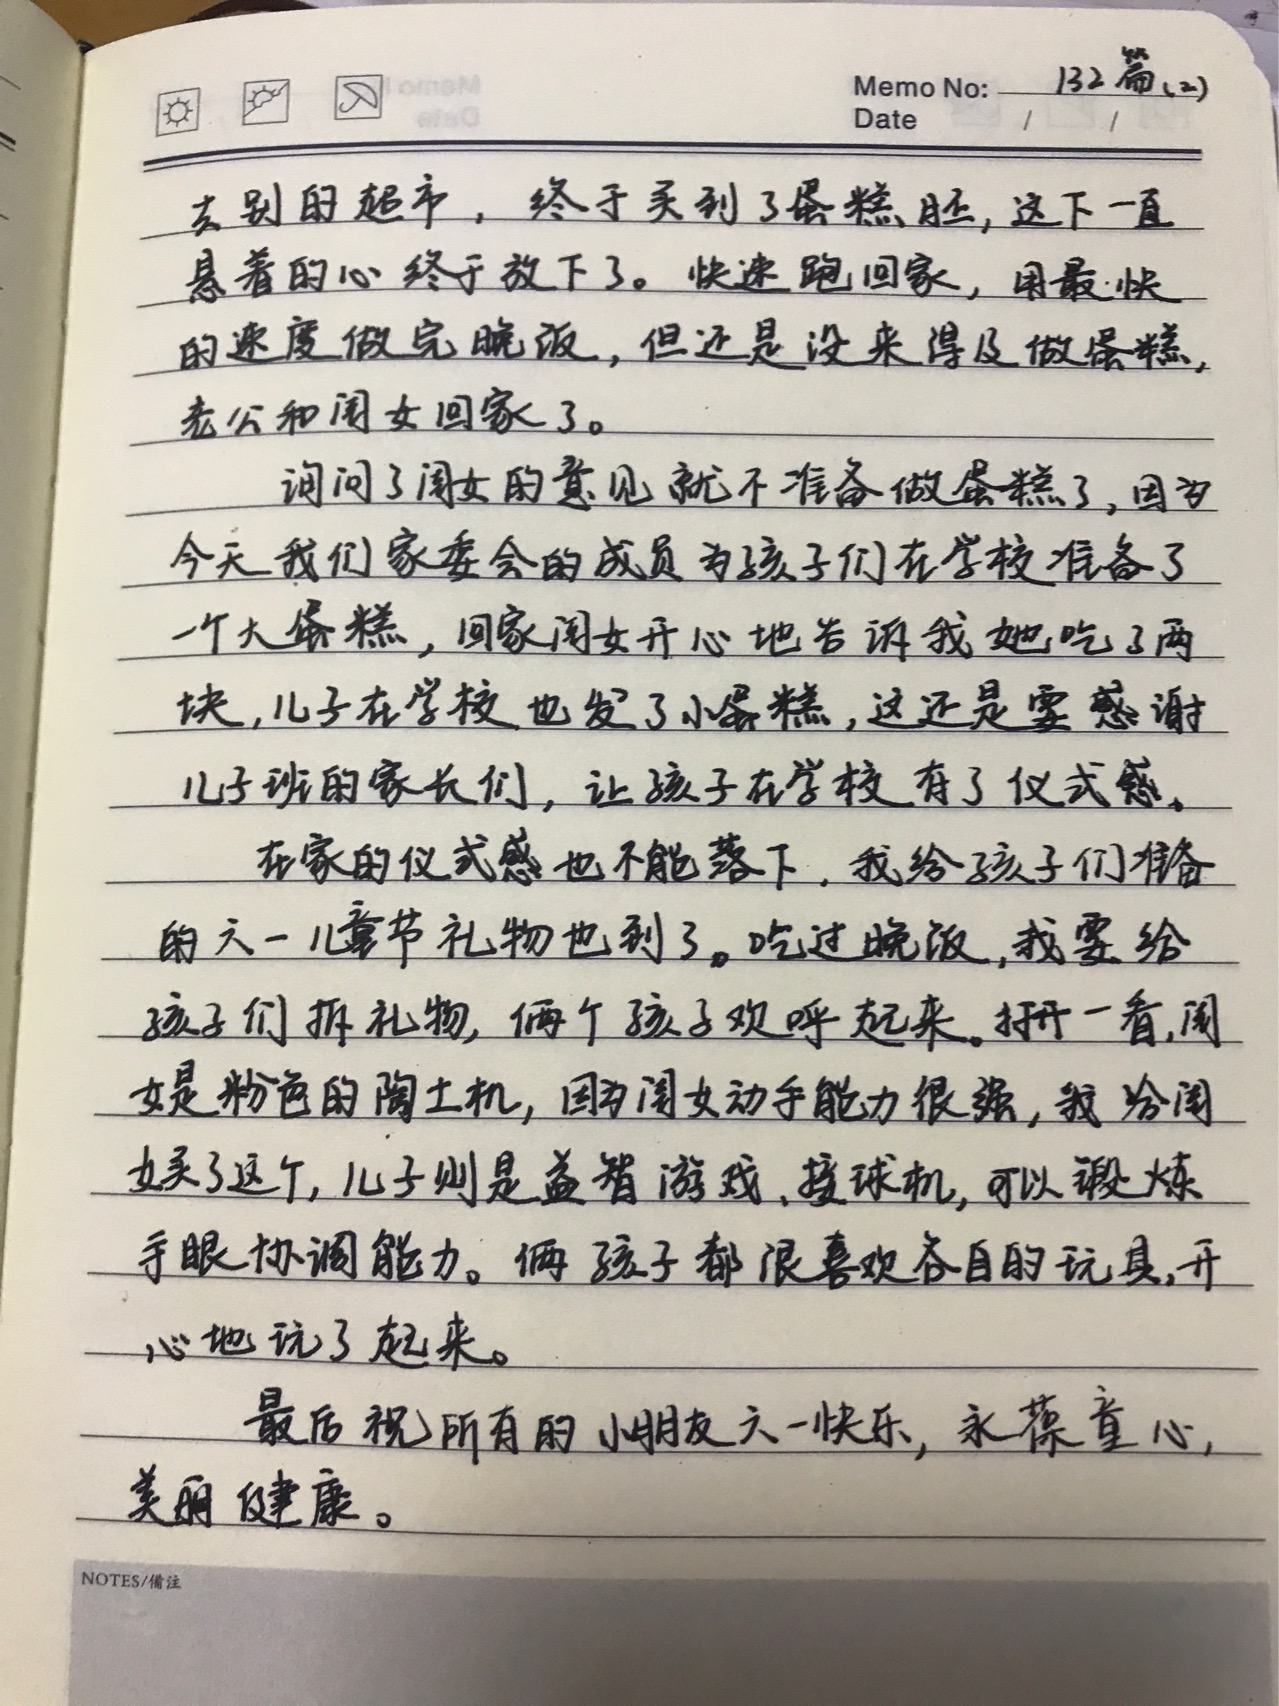 Memo No: 132篇(2)
Date / /
去别的超市，终于买到了蛋糕胚，这下一直
悬着的心终于放下了。快速跑回家，用最快
的速度做完晚饭，但还是没来得及做蛋糕，
老公和闺女回家了。
询问了闺女的意见就不准备做蛋糕了，因为
今天我们家委会的成员为孩子们在学校准备了
一个大蛋糕，回家闺女开心地告诉我她吃了两
块，儿子在学校也发了小蛋糕，这还是要感谢
儿子班的家长们，让孩子在学校有了仪式感。
在家的仪式感也不能落下，我给孩子们准备
的六一儿童节礼物也到了。吃过晚饭，我要给
孩子们拆礼物，俩个孩子欢呼起来。打开一看，闺
女是粉色的陶土机，因为闺女动手能力很强，我给闺
女买了这个，儿子则是益智游戏、接球机，可以锻炼
手眼协调能力。俩孩子都很喜欢各自的玩具，开
心地玩了起来。
最后祝所有的小朋友六一快乐，永葆童心，
美丽健康。
NOTES/備注